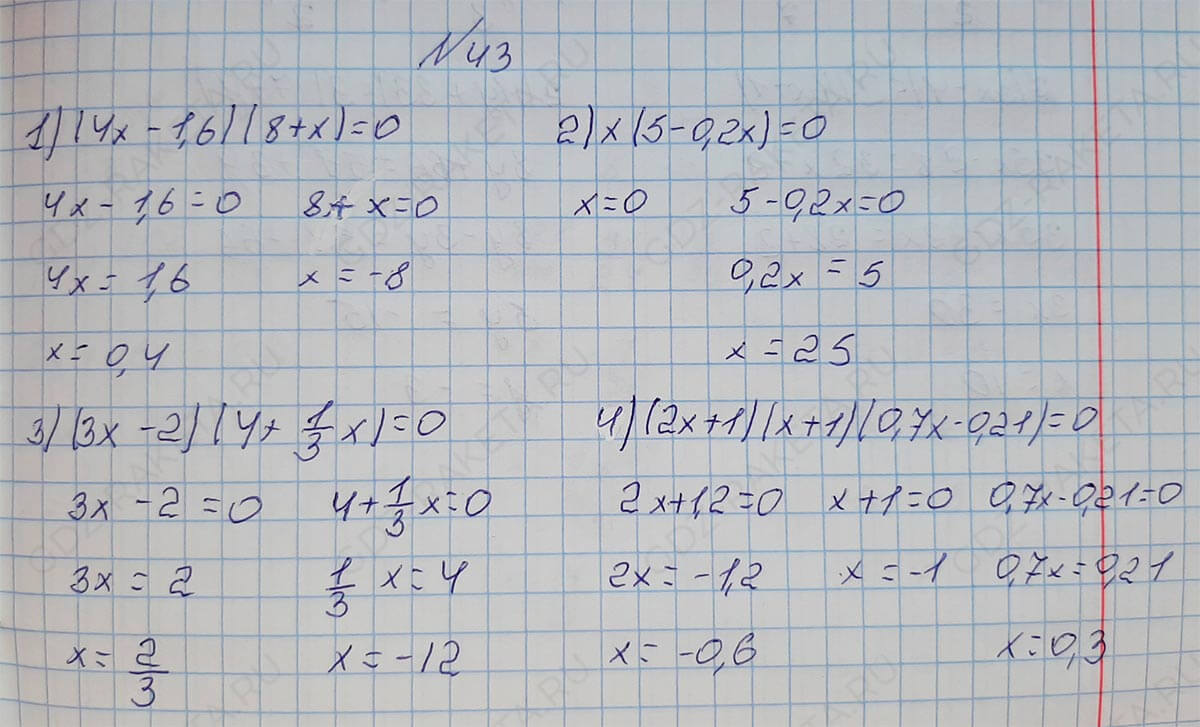 N43
1) (4x - 1,6) (8+x)=0
4x - 1,6 = 0 8+ x=0
4x = 1,6 x = -8
x= 0,4
2) x (5-0,2x)=0
x=0 5-0,2x=0
0,2x = 5
x = 25
3) (3x -2) (4+ 1/3 x)=0
3x -2 = 0 4+1/3x=0
3x = 2 1/3 x=4
x= 2/3 x = -12
4) (2x+1)(x+1)(0,7x-0,21)=0
2x+1,2=0 x+1=0 0,7x-0,21=0
2x= -1,2 x = -1 0,7x=0,21
x= -0,6 x=0,3
GDZ-RAKETA.RU